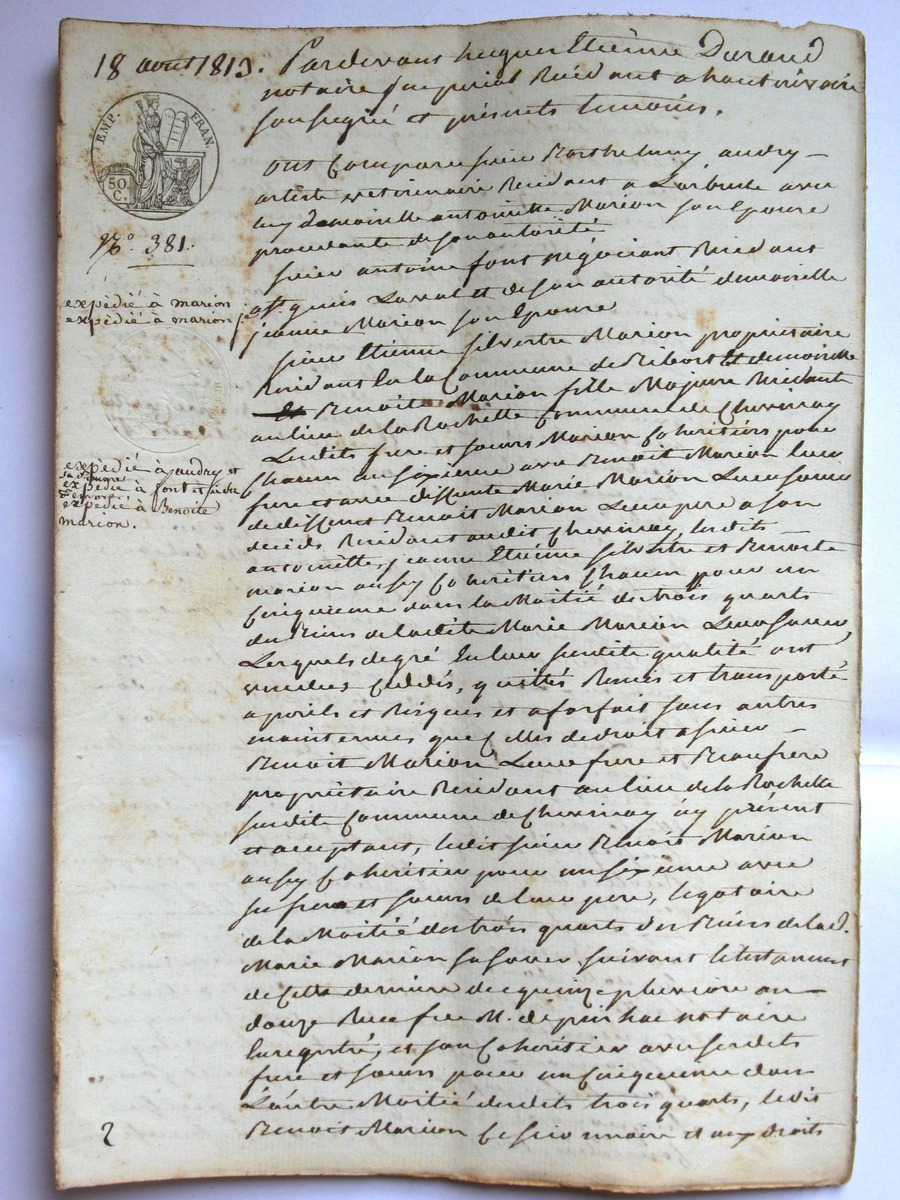 18 aout 1813.
EMP. FRAN.
50 C.
N.o 381.
expèdié à marion
expèdié à marion
expèdié à audry et
expèdié à font et
expèdié à Benoite
marion.
2
Pardevant Etienne Durand
notaire impérial Residant a hautrivoire
soussigné et présents temoins.
ont Comparu sieur Barthelemy audry
artiste veterinaire Residant a Larbresle avec
luy demoiselle antoinette Marion son Epouse
procedante de son autorité
sieur antoine font négociant Residant
a st genis Laval et de son autorité demoiselle
jeanne Marion son Epouse
sieur Etienne silvestre Marion proprietaire
Residant En la Commune de Et demoiselle
Benoite Marion fille Majeure Residante
au lieu de la Rochette Commune de Chevinay
Lesdits frere et soeurs Marion Coheritiers pour
Chacun un sixieme avec Benoit Marion leur
frere et avec deffunte Marie Marion Leur soeur
de deffunt Benoit Marion Leur pere a son
décès Residant audit Chevinay, Lesdits
antoinette, jeanne Etienne silvestre et Benoite
marion aussy Coheritiers Chacun pour un
Cinquieme dans la Moitié des trois quarts
des Biens de ladite Marie Marion Leur soeur,
Lesquels de gré En leur susdite qualité ont
vendus Cédés, quittés Remis et transporté
a perils et Risques et a forfait sans autres
maintenues que Celles de droit a sieur
Benoit Marion Leur frere et Beaufrere
propriètaire Residant au lieu de la Rochette
susdite Commune de Chevinay icy présent
et acceptant, ledit sieur Benoit Marion
aussy Coheritier pour un sixieme avec
ses frere et soeurs de leur pere, legataire
de la Moitié des trois quarts des Biens de lad.
Marie Marion sa soeur, suivant le testament
de Cette derniere de quinze pluviose an
douze Recu par M. notaire
Enregistré, et son Coheritier avec sesdits
frere et soeurs pour un Cinquieme dans
L'autre Moitié desdits trois quarts, ledit
Benoit Marion Cessionnaire et aux droits